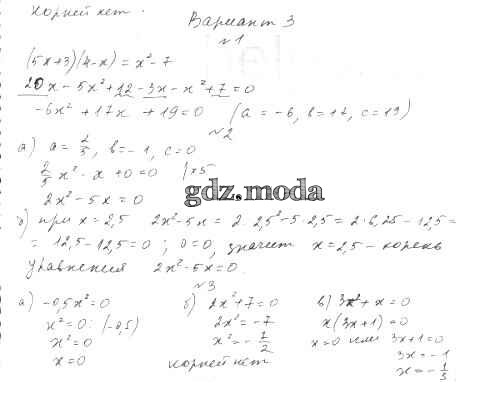 корней нет.
Вариант 3
№1
(5x+3)(4-x) = x²-7
20x - 5x² + 12 - 3x - x² + 7 = 0
-6x² + 17x + 19 = 0 (a = -6, b = 17, c = 19)
№2
а) a = 2/5, b = -1, c = 0
2/5 x² - x + 0 = 0 | ×5
2x² - 5x = 0
gdz.moda
б) при x = 2,5 2x²-5x = 2·2,5²-5·2,5 = 2·6,25-12,5 =
= 12,5-12,5 = 0 ; 0=0, значит x=2,5 - корень
уравнения 2x²-5x=0.
№3
а) -0,5x²=0
x²=0:(-0,5)
x²=0
x=0
б) 2x²+7=0
2x²=-7
x²=-7/2
корней нет
в) 3x²+x=0
x(3x+1)=0
x=0 или 3x+1=0
3x=-1
x=-1/3